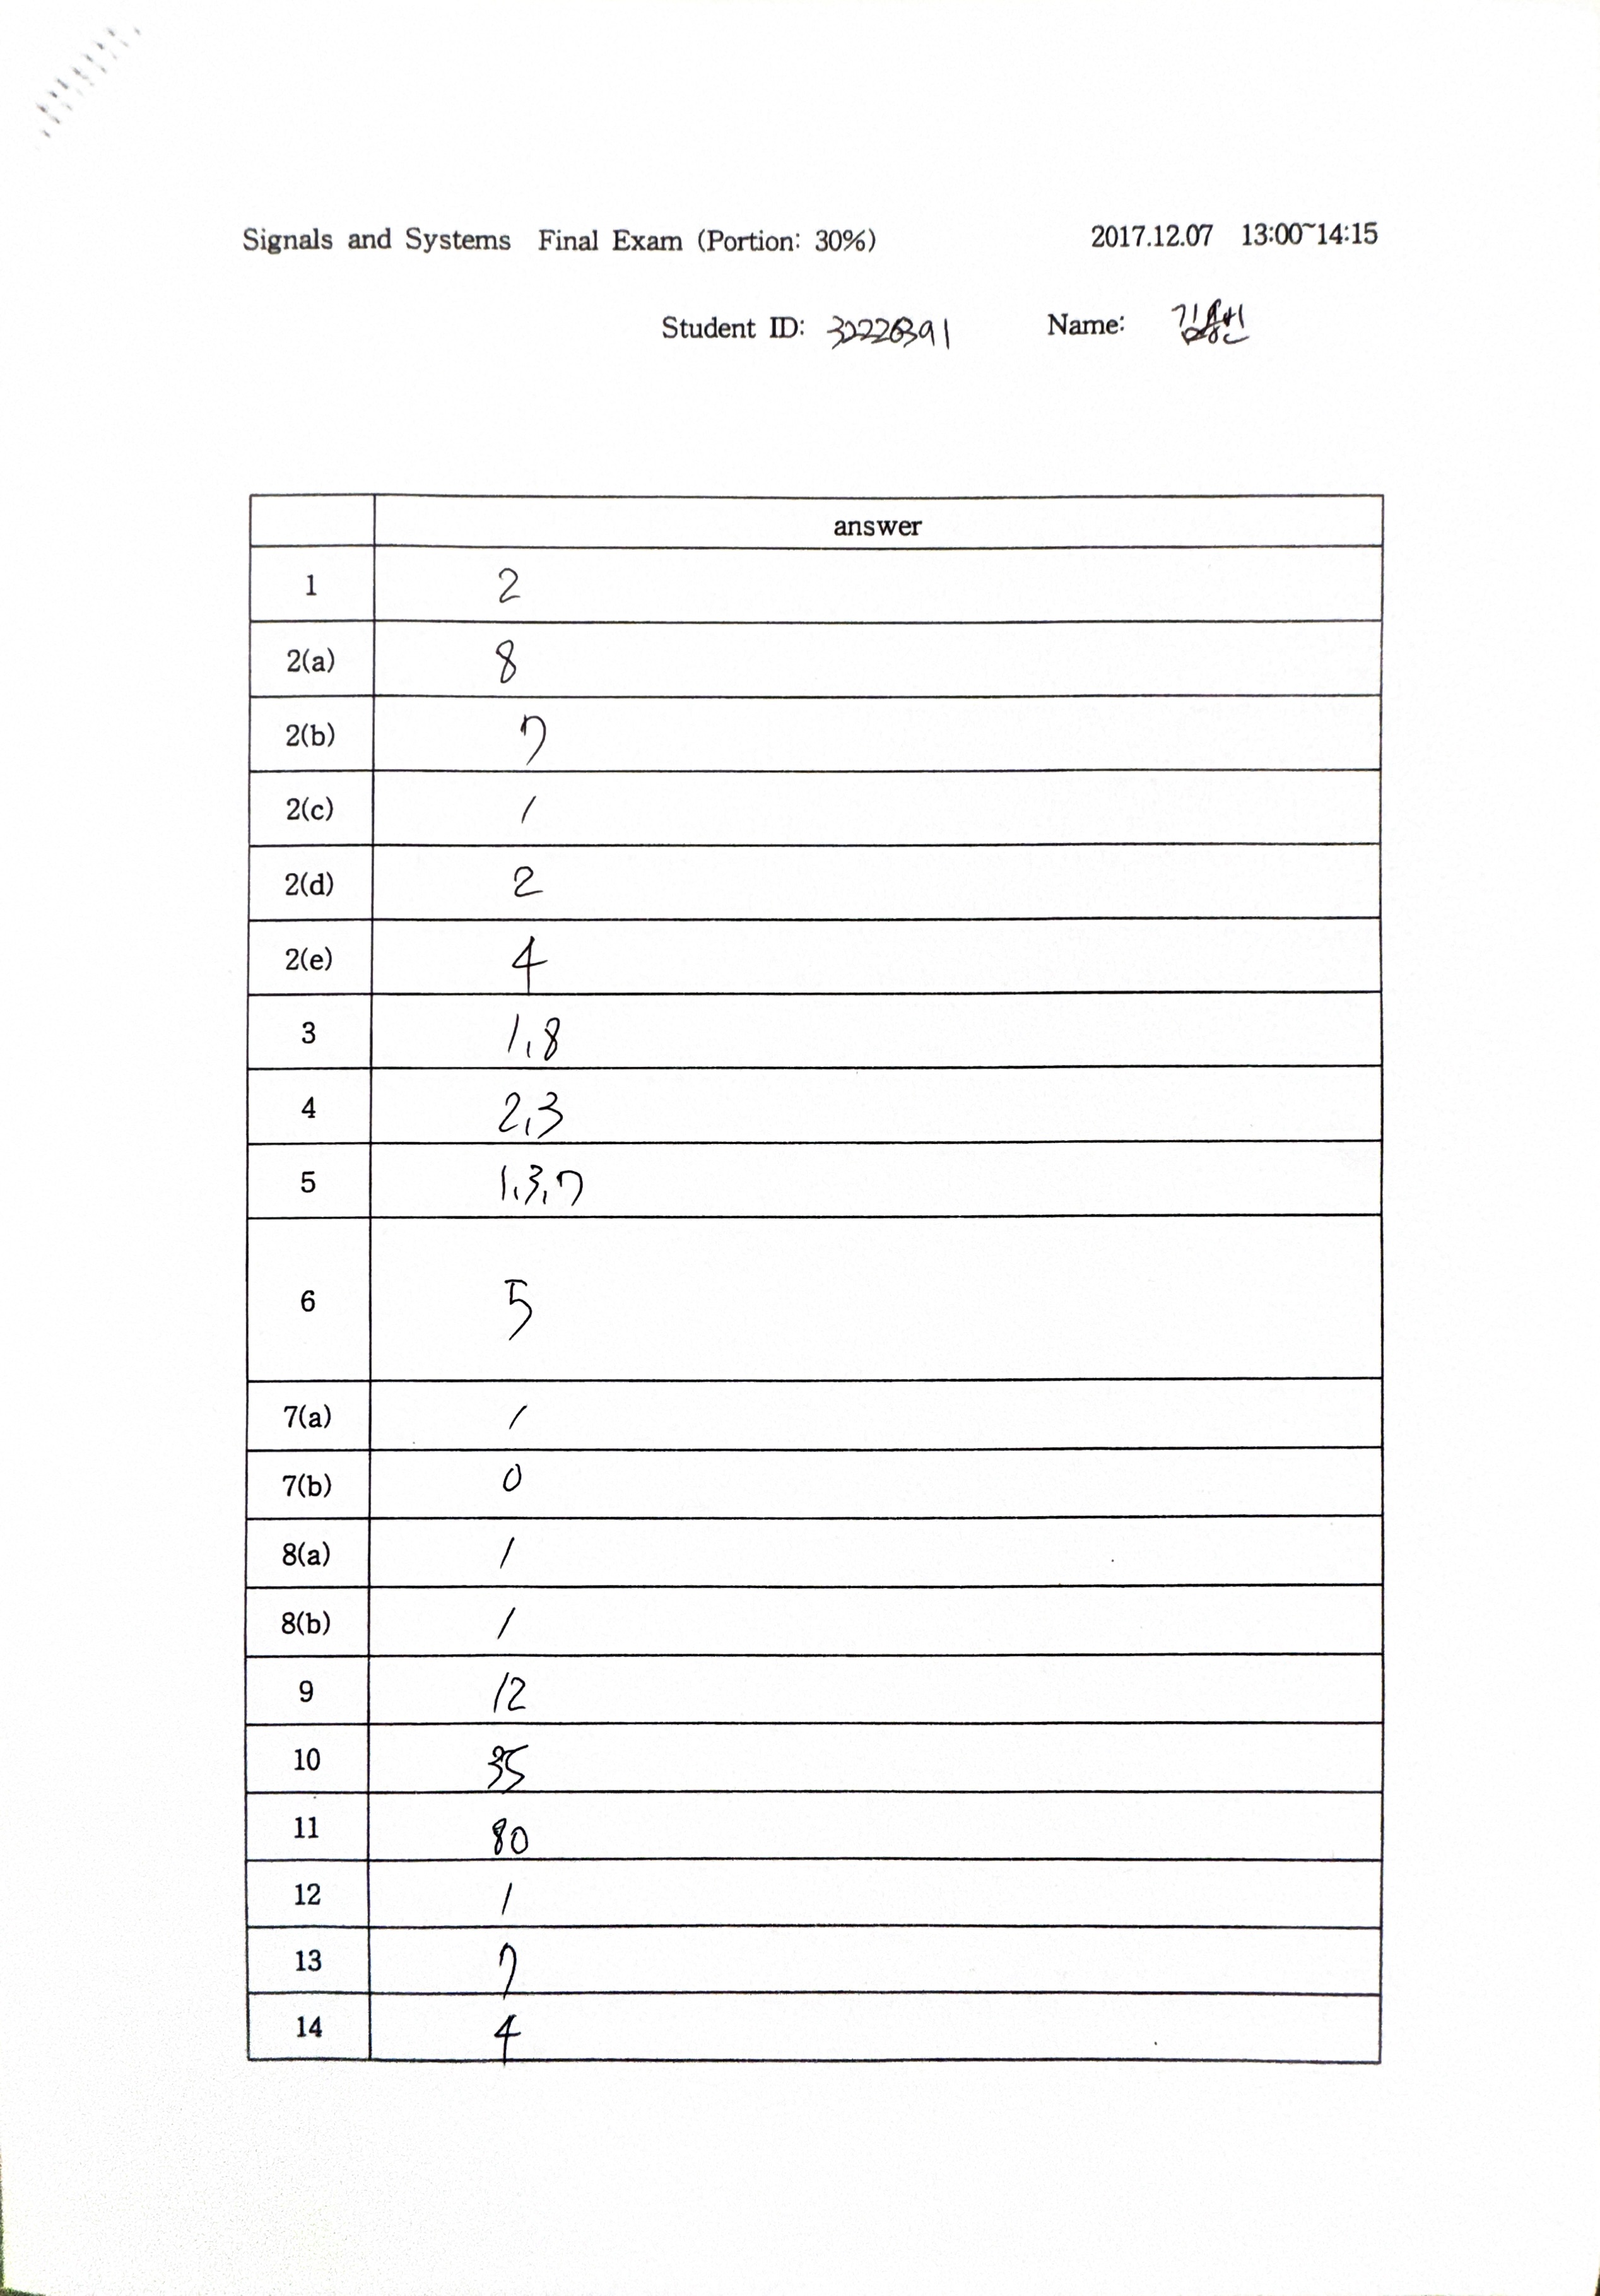 Signals and Systems Final Exam (Portion: 30%) 2017.12.07 13:00~14:15
Student ID: Name:
answer
1 2
2(a) 8
2(b) 7
2(c) 1
2(d) 2
2(e) 4
3 1,8
4 2,3
5 1,3,7
6 5
7(a) 1
7(b) 0
8(a) 1
8(b) 1
9 12
10 35
11 80
12 1
13 7
14 4